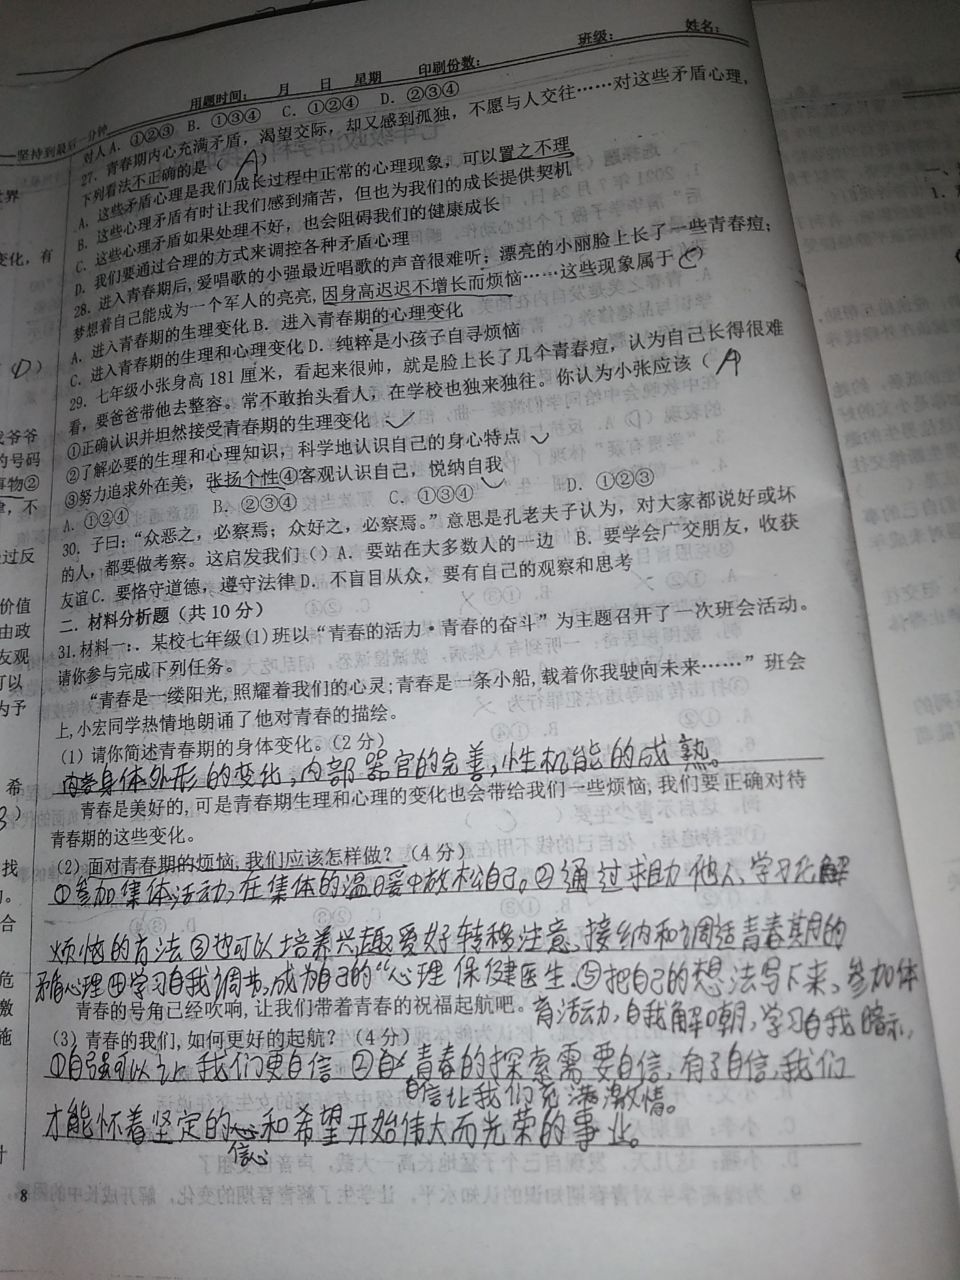 用题时间： 月 日 星期 印刷份数： 班级： 姓名：
坚持到最后一分钟
对人A. ①②③ B. ①③④ C. ①②④ D. ②③④
27. 青春期内心充满矛盾，渴望交际，却又感到孤独，不愿与人交往……对这些矛盾心理，
下列看法不正确的是（A）
A. 这些矛盾心理是我们成长过程中正常的心理现象，可以置之不理
B. 这些心理矛盾有时让我们感到痛苦，但也为我们的成长提供契机
C. 这些心理矛盾如果处理不好，也会阻碍我们的健康成长
D. 我们要通过合理的方式来调控各种矛盾心理
28. 进入青春期后，爱唱歌的小强最近唱歌的声音很难听；漂亮的小丽脸上长了一些青春痘；
梦想着自己能成为一个军人的亮亮，因身高迟迟不增长而烦恼……这些现象属于（C）
A. 进入青春期的生理变化 B. 进入青春期的心理变化
C. 进入青春期的生理和心理变化 D. 纯粹是小孩子自寻烦恼
29. 七年级小张身高 181 厘米，看起来很帅，就是脸上长了几个青春痘，认为自己长得很难
看，要爸爸带他去整容。常不敢抬头看人，在学校也独来独往。你认为小张应该（A
①正确认识并坦然接受青春期的生理变化
②了解必要的生理和心理知识，科学地认识自己的身心特点
③努力追求外在美，张扬个性④客观认识自己，悦纳自我
A. ①②④ B. ②③④ C. ①③④ D. ①②③
30. 子曰：“众恶之，必察焉；众好之，必察焉。”意思是孔老夫子认为，对大家都说好或坏
的人，都要做考察。这启发我们（）A. 要站在大多数人的一边 B. 要学会广交朋友，收获
友谊 C. 要恪守道德，遵守法律 D. 不盲目从众，要有自己的观察和思考
二. 材料分析题（共 10 分）
31.材料一：. 某校七年级(1)班以“青春的活力·青春的奋斗”为主题召开了一次班会活动。
请你参与完成下列任务。
“青春是一缕阳光,照耀着我们的心灵;青春是一条小船,载着你我驶向未来……”班会
上,小宏同学热情地朗诵了他对青春的描绘。
(1) 请你简述青春期的身体变化。(2 分)
身体外形的变化，内部器官的完善，性机能的成熟。
青春是美好的,可是青春期生理和心理的变化也会带给我们一些烦恼,我们要正确对待
青春期的这些变化。
(2) 面对青春期的烦恼,我们应该怎样做？（4 分）
①参加集体活动，在集体的温暖中放松自己。②通过求助他人、学习化解
烦恼的方法③也可以培养兴趣爱好转移注意、接纳和调适青春期的
矛盾心理④学习自我调节，成为自己的“心理保健医生.⑤把自己的想法写下来，参加体
青春的号角已经吹响,让我们带着青春的祝福起航吧。
育活动，自我解嘲，学习自我暗示，
(3) 青春的我们,如何更好的起航？（4 分）
①自强可以让我们更自信 ②青春的探索需要自信，有了自信，我们
自信让我们充满激情。
才能怀着坚定的信心和希望开始伟大而光荣的事业。
8
世界
变化，有
D）
爷爷
的号码
事物②
律，不
过反
价值
由政
友观
可以
为予
希
找
合
危
激
施